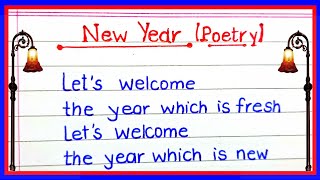 New Year [Poetry]
Let's welcome
the year which is fresh
Let's welcome
the year which is new